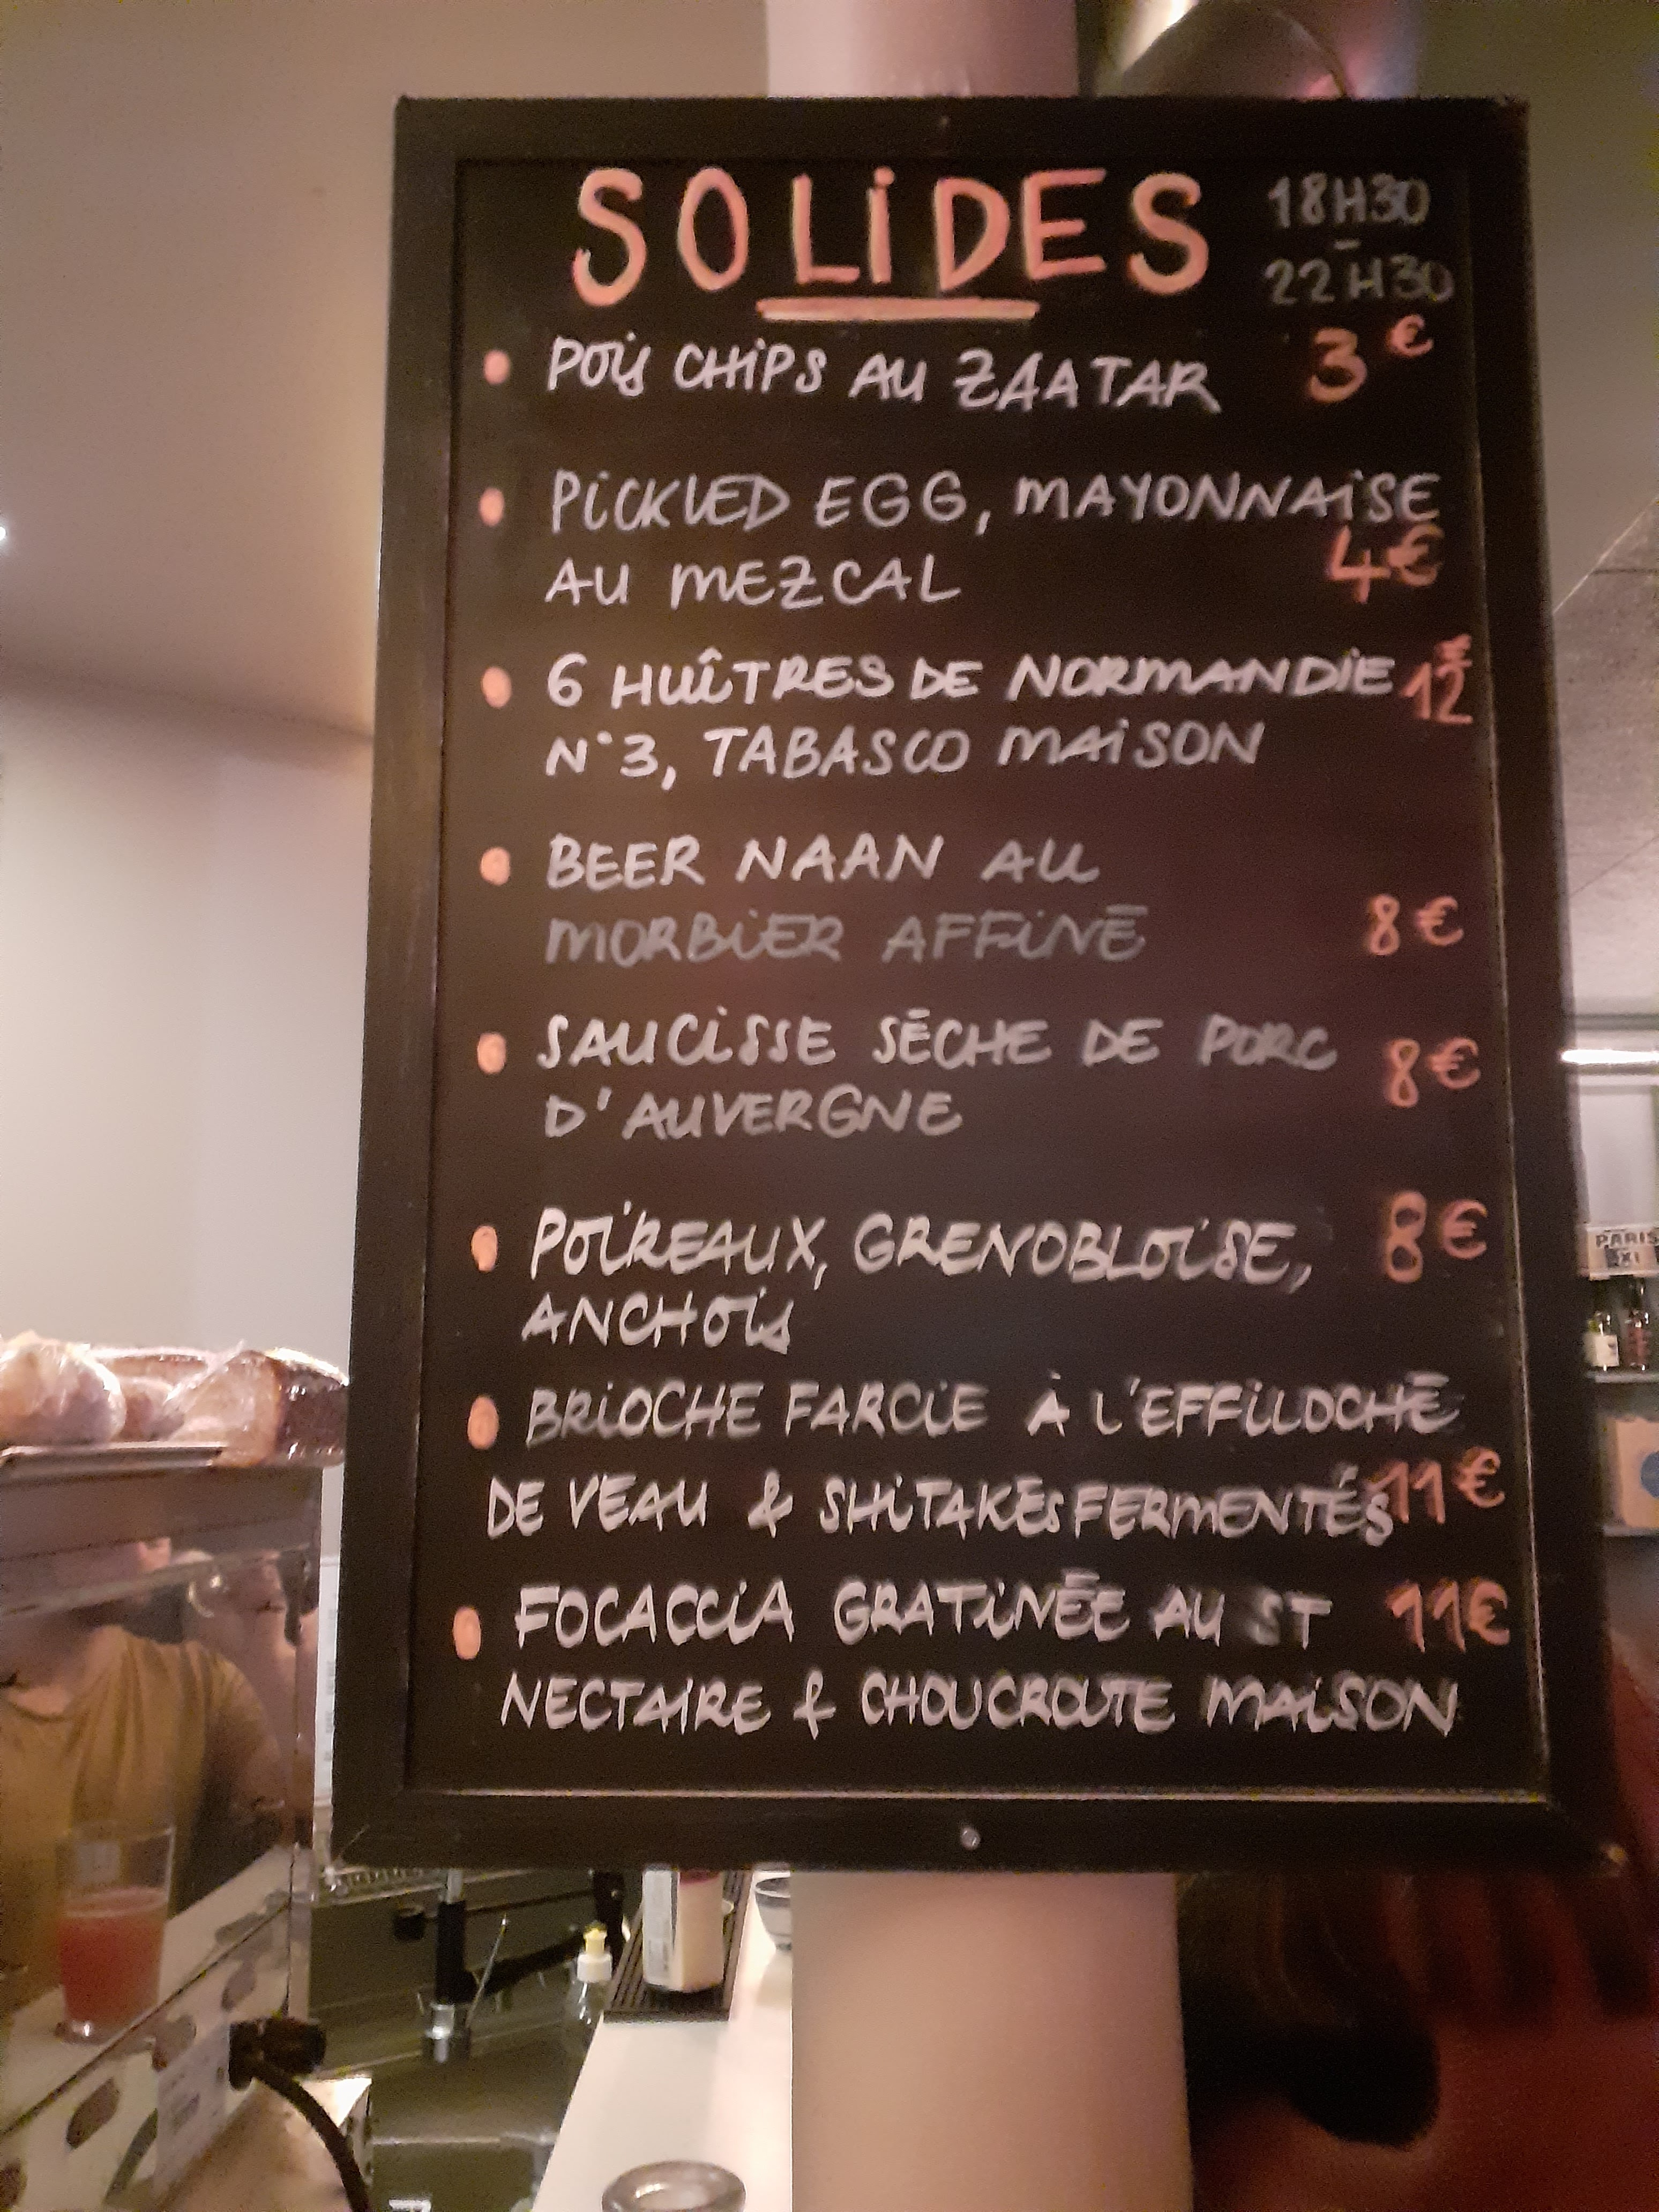 SOLiDES 18H30
-
22H30
POiS CHiPS AU ZAATAR 3€
PiCKLED EGG, MAYONNAiSE
AU MEZCAL 4€
6 HUÎTRES DE NORMANDiE 12€
N°3, TABASCO MAiSON
BEER NAAN AU
MORBiER AFFiNÉ 8€
SAUCiSSE SÉCHE DE PORC 8€
D'AUVERGNE
POiREAUX, GRENOBLOiSE, 8€
ANCHOiS
BRiOCHE FARCiE À L'EFFiLOCHÉ
DE VEAU & SHiTAKÉS FERMENTÉS 11€
FOCACCiA GRATiNÉE AU ST 11€
NECTAiRE & CHOUCROUTE MAiSON
PARIS
XI